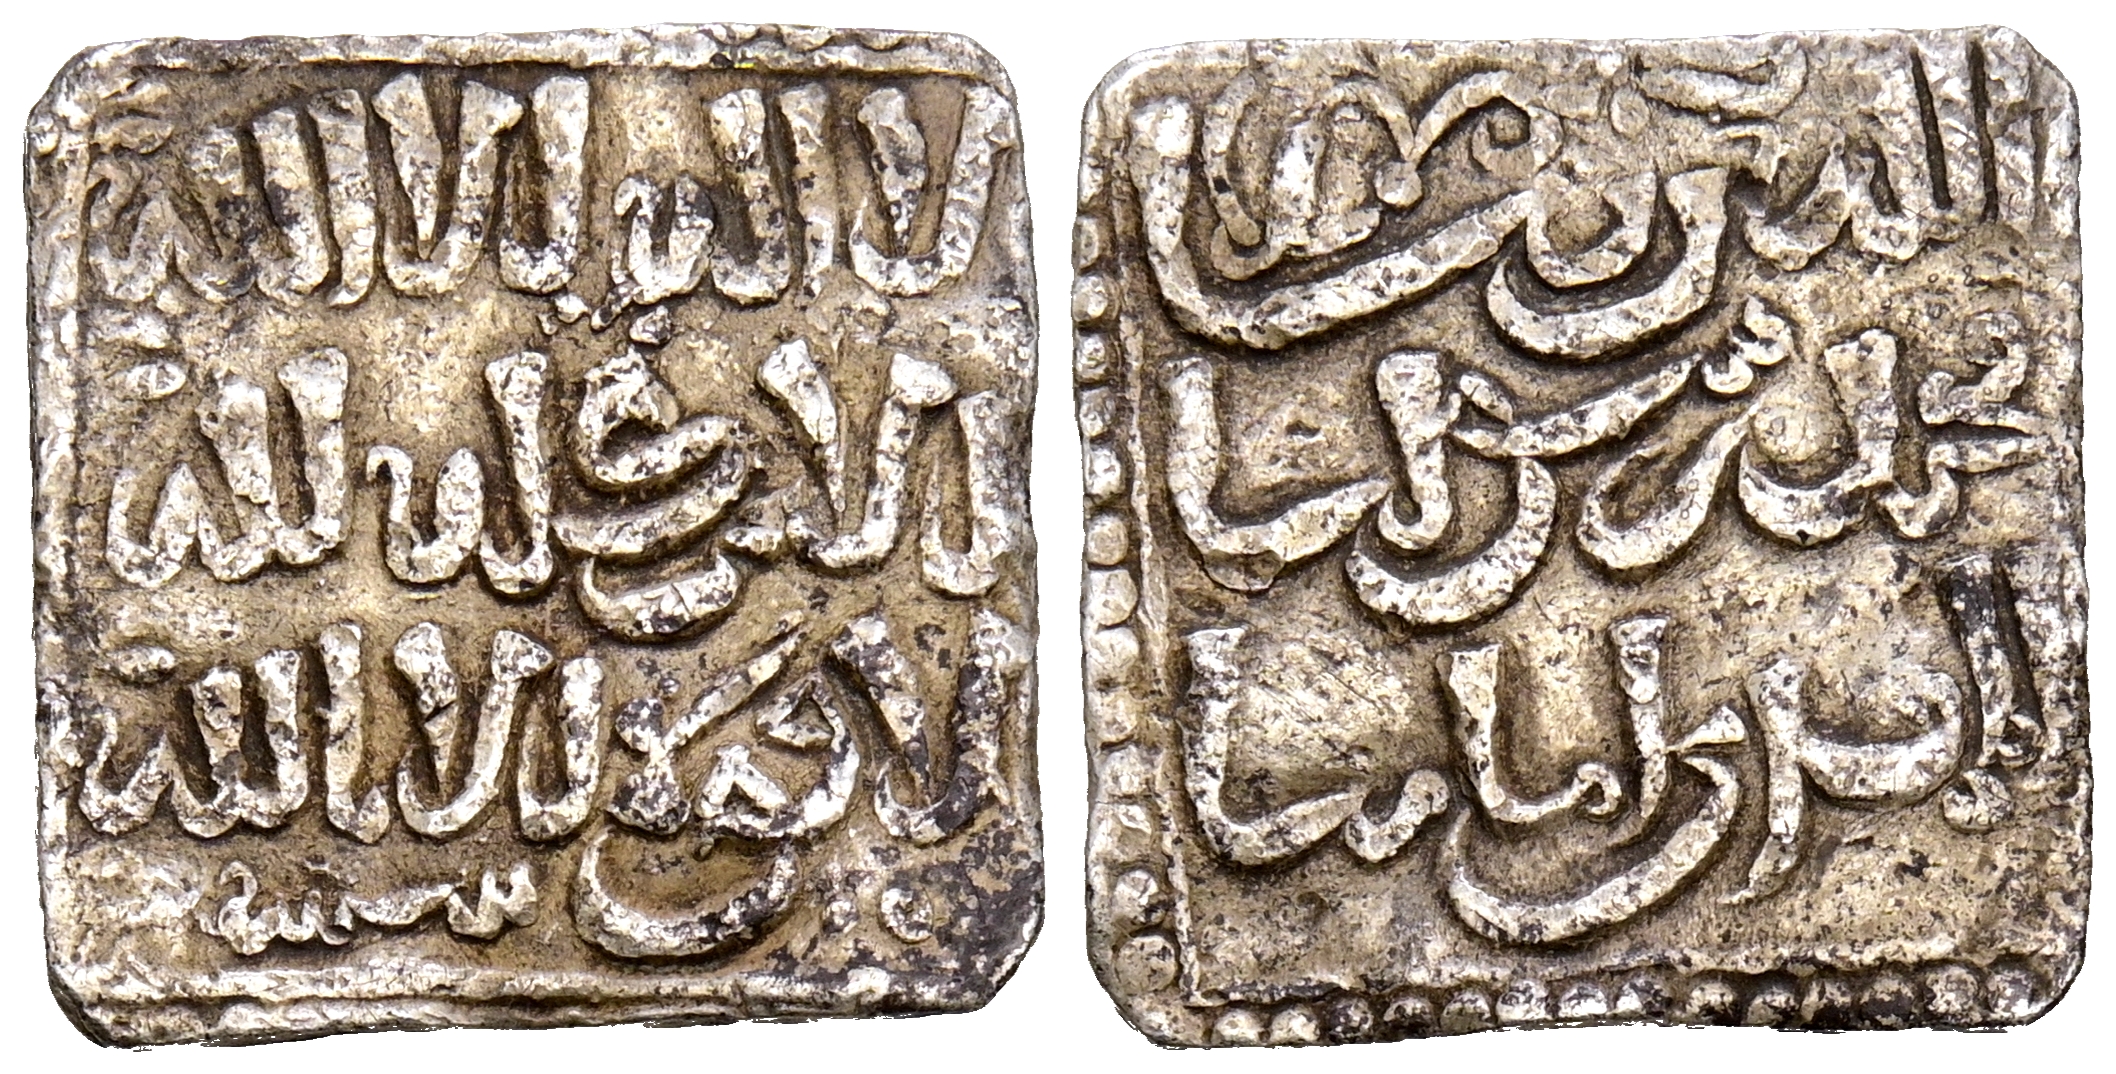 لا اله الا الله
الامر كله لله
لا قوة الا بالله
سبتة
الله ربنا
محمد رسولنا
المهدي امامنا